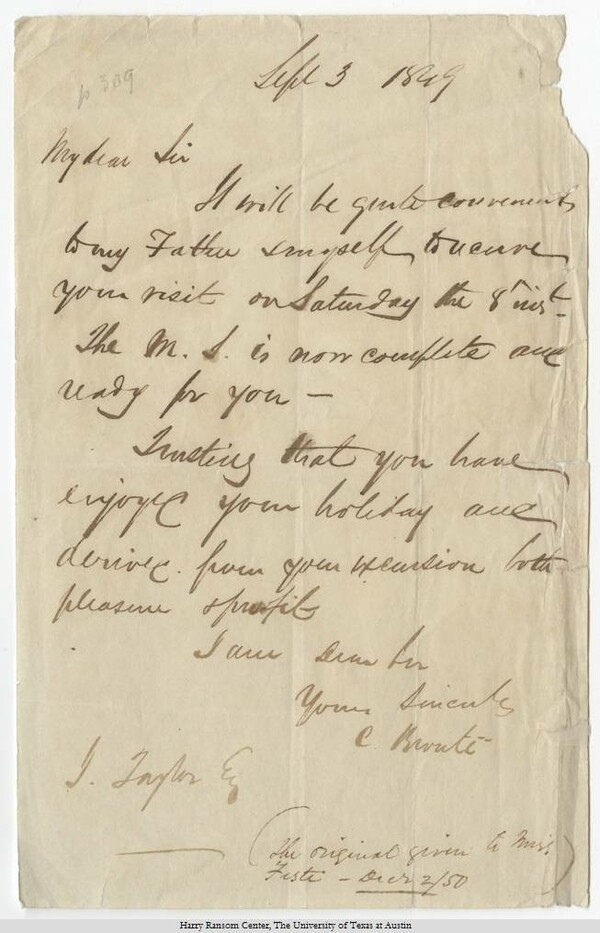 p 389
Sept 3 1849
My dear Sir
It will be quite convenient
to my Father & myself to receive
your visit on Saturday the 8th inst -
The M. S. is now complete and
ready for you -
Trusting that you have
enjoyed your holiday and
derived from your excursion both
pleasure & profit
I am Dear Sir
Yours Sincerely
C Bronte
J. Taylor Esq
(The original given to Miss
- Decr 2/50)
Harry Ransom Center, The University of Texas at Austin